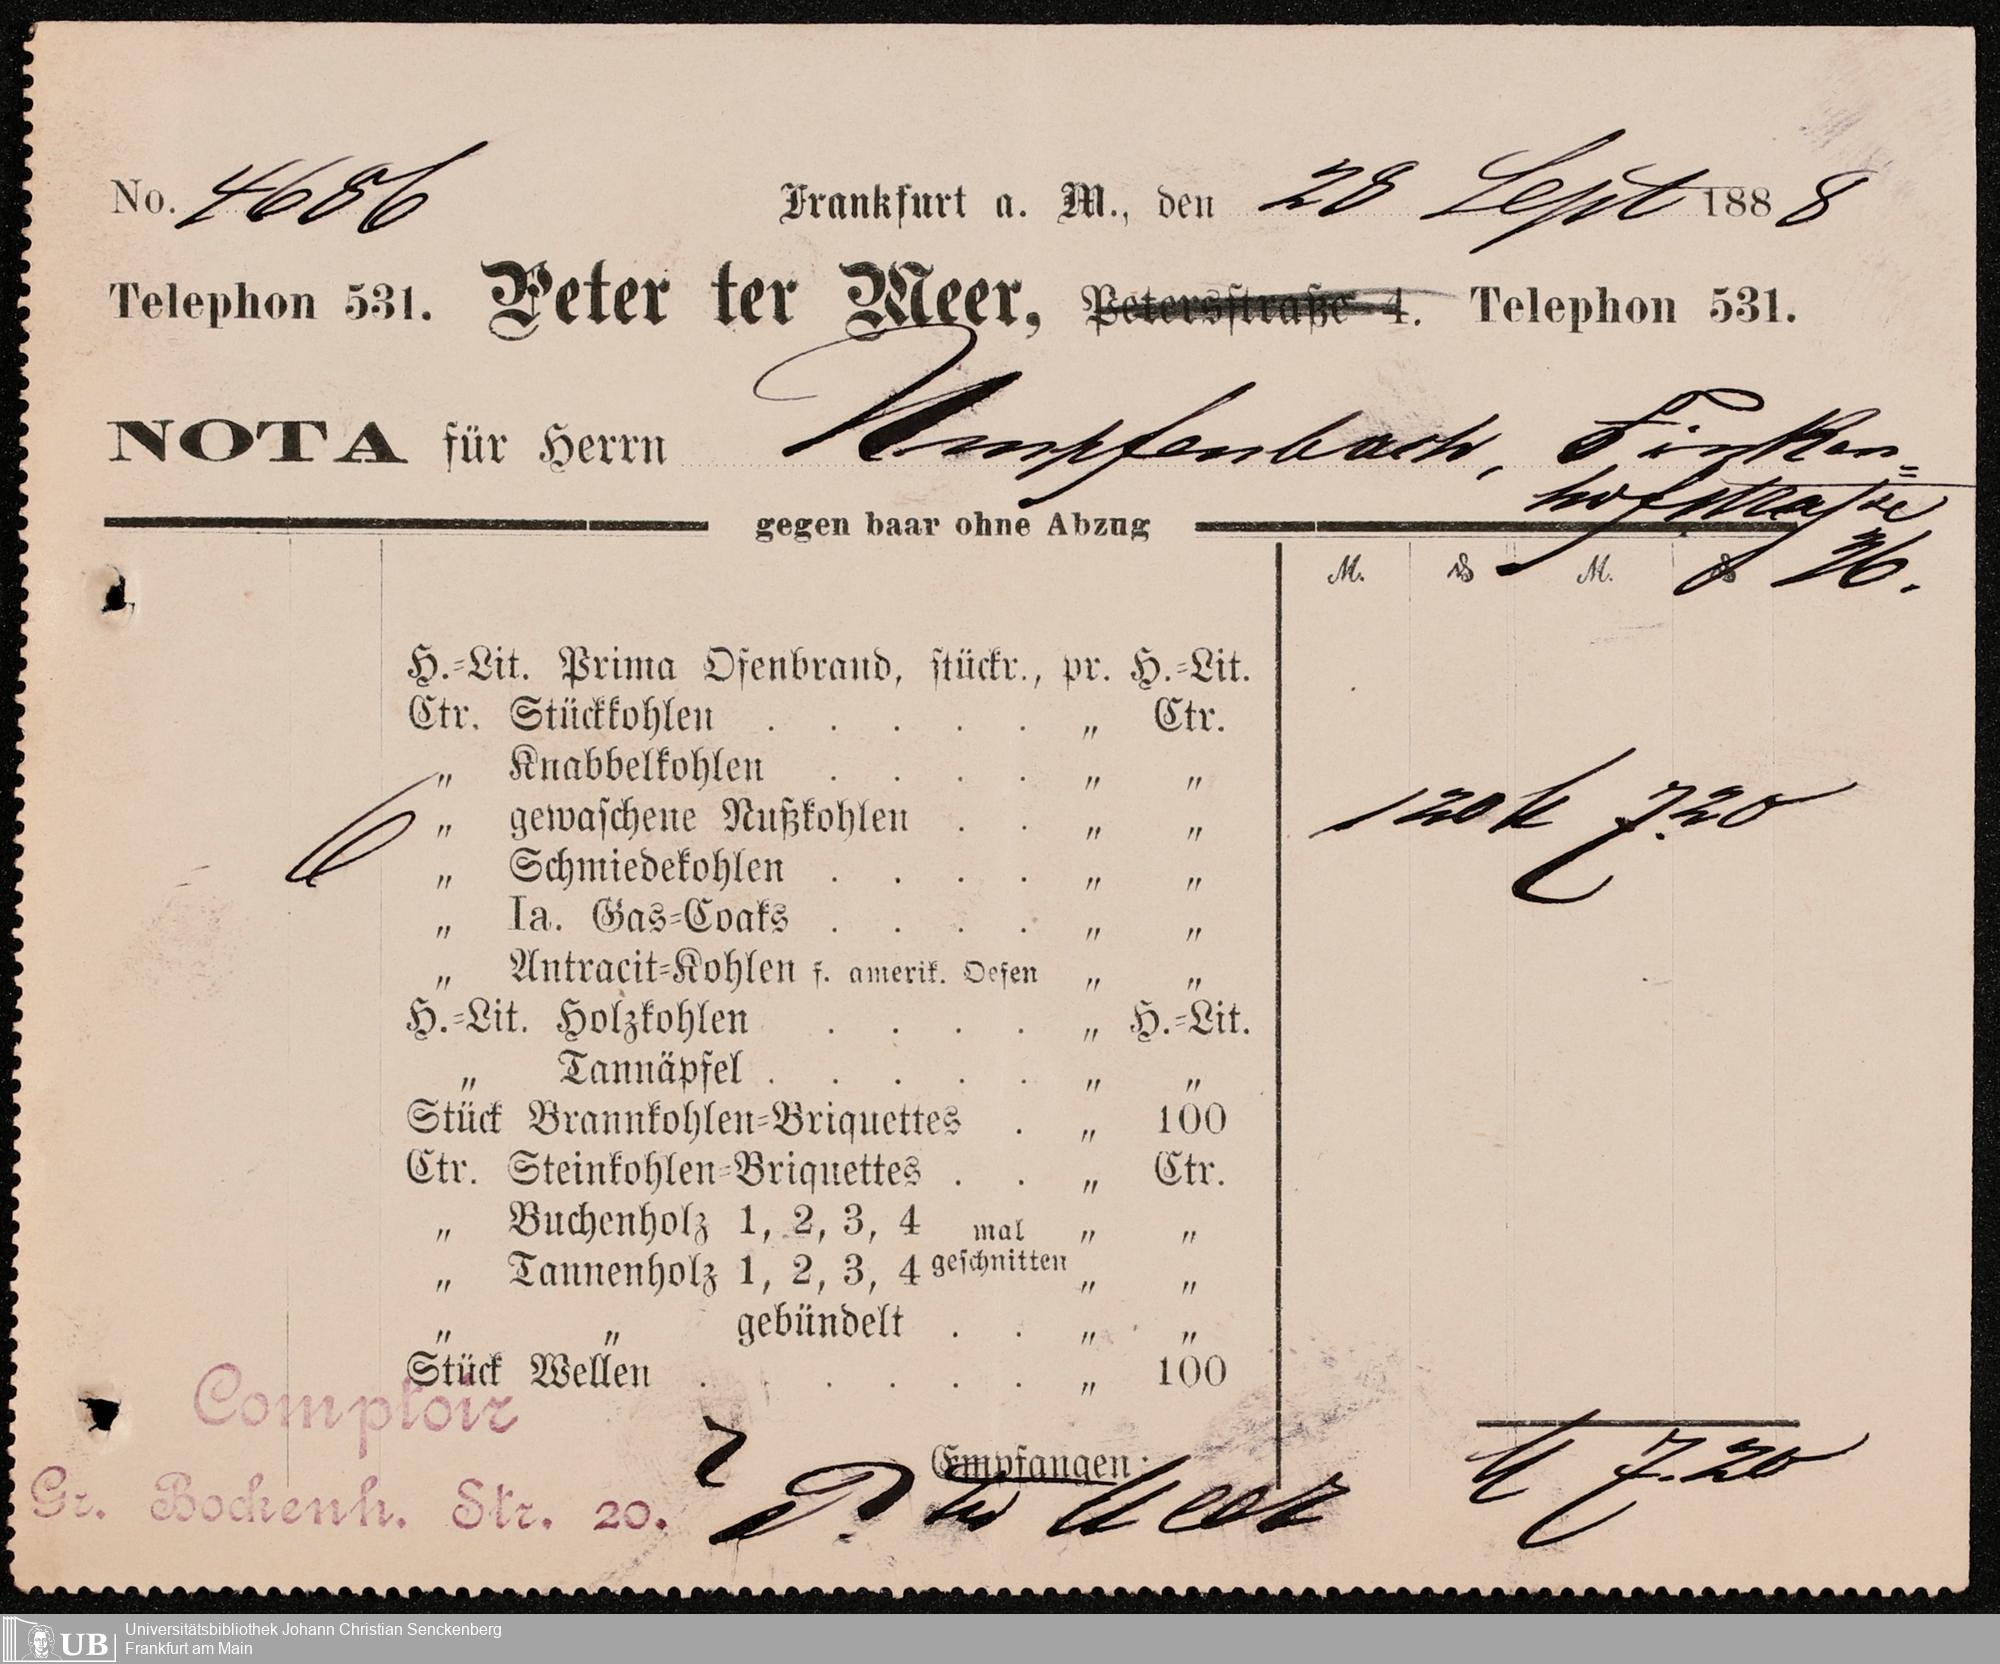 No. 4686 Frankfurt a. M., den 28 Sept 1888
Telephon 531. Peter ter Meer, Petersstraße 4. Telephon 531.
NOTA für Herrn Umpfenbach, Finken=
hofstraße
36.
gegen baar ohne Abzug
M. ₰ M. ₰
H.=Lit. Prima Ofenbrand, stückr., pr. H.=Lit.
Ctr. Stückkohlen . . . . . „ Ctr.
„ Knabbelkohlen . . . . „ „
6 „ gewaschene Nußkohlen . . „ „ 120 M 7.20
„ Schmiedekohlen . . . . „ „
„ Ia. Gas=Coaks . . . . „ „
„ Antracit=Kohlen f. amerik. Oefen „ „
H.=Lit. Holzkohlen . . . . „ H.=Lit.
„ Tannäpfel . . . . . „ „
Stück Brannkohlen=Briquettes . „ 100
Ctr. Steinkohlen=Briquettes . . „ Ctr.
„ Buchenholz 1, 2, 3, 4 mal „ „
„ Tannenholz 1, 2, 3, 4 geschnitten „ „
„ „ gebündelt . . „ „
Stück Wellen . . . . . . „ 100
Comptoir
Gr. Bockenh. Str. 20.
Empfangen:
P. ter Meer
M 7.20
UB
Universitätsbibliothek Johann Christian Senckenberg
Frankfurt am Main